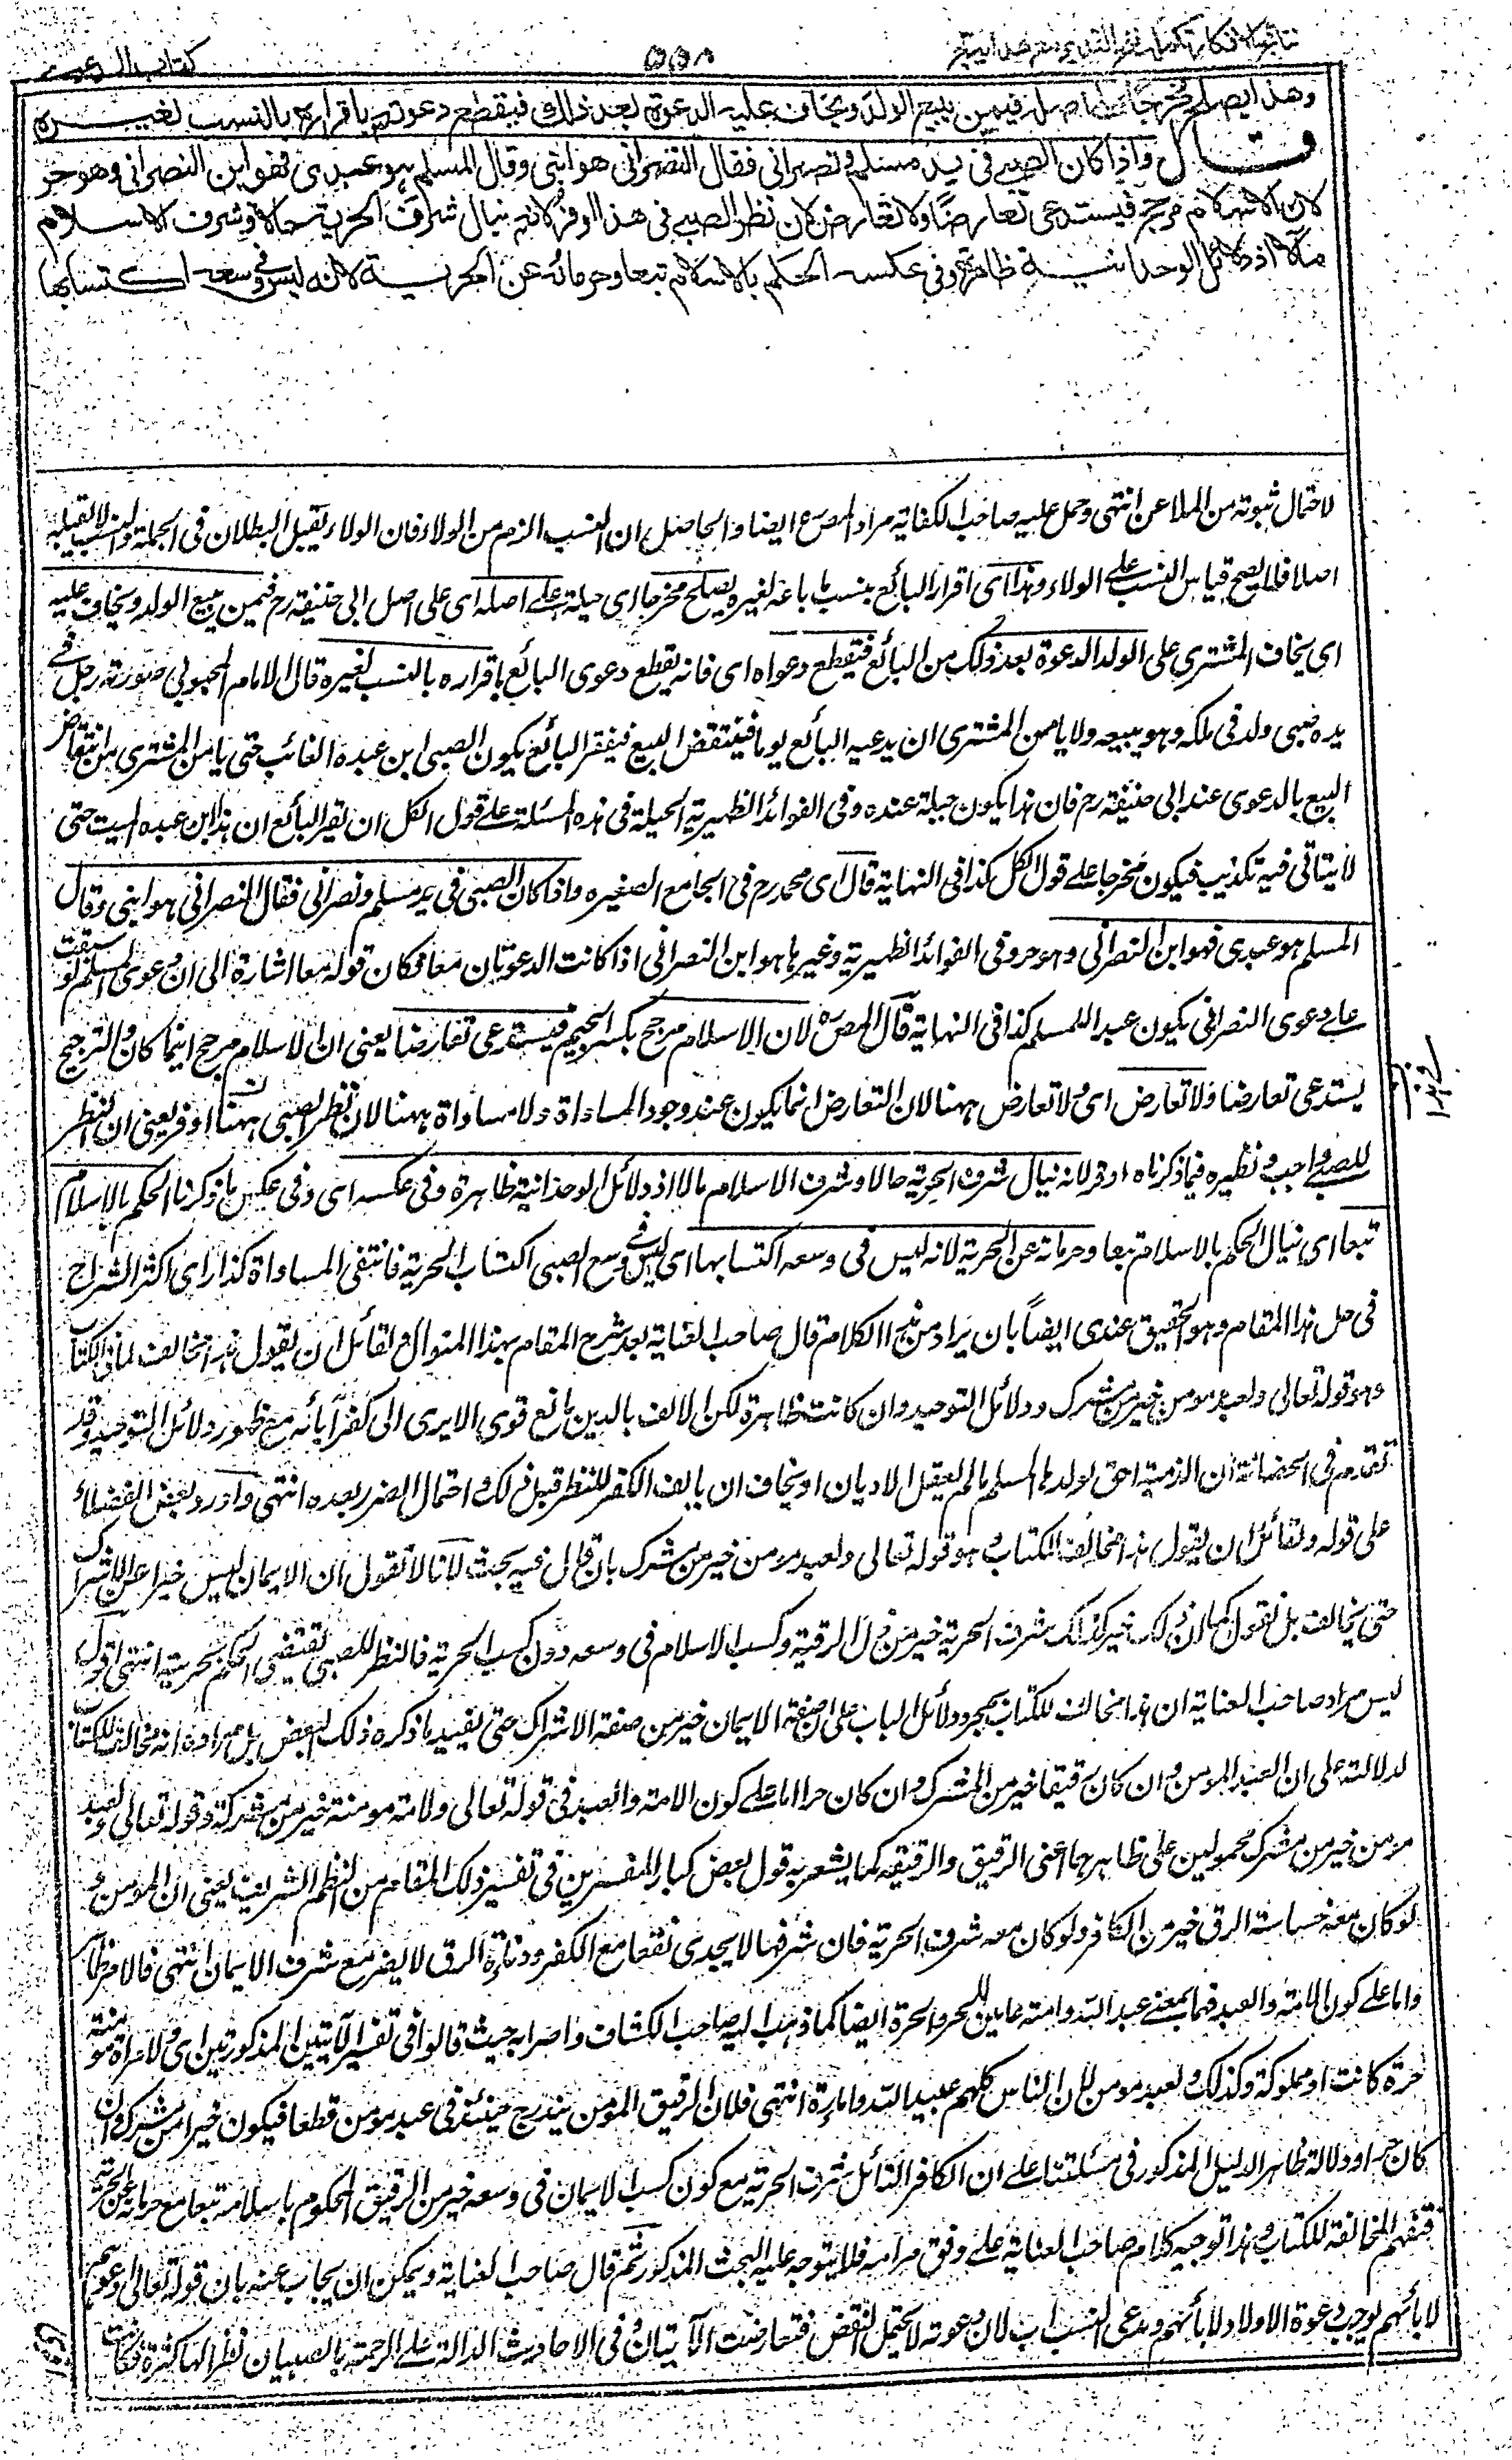 نتائج الافكار تكملة فتح القدير مع هداية ج
۵۵۸
كتاب الدعوى
وهذا يصلح مخرجا على اصله فيمن يبيع الولد ويخاف عليه الدعوة بعد ذلك فيقطع دعوته باقراره بالنسب لغيره
قال واذا كان الصبي في يد مسلم ونصراني فقال النصراني هو ابني وقال المسلم هو عبدي فهو ابن النصراني وهو حر
لان الاسلام مرجح فيستدعي تعارضا ولا تعارض لان نظر الصبي في هذا اوفر لانه ينال شرف الحرية حالا وشرف الاسلام
مآلا اذ دلائل الوحدانية ظاهرة وفي عكسه الحكم بالاسلام تبعا وحرمانه عن الحرية لانه ليس في وسعه اكتسابها
لاحتمال ثبوته من الملاعن انتهى وحمل عليه صاحب الكفاية مراد المص رح ايضا والحاصل ان النسب الزم من الولاء فان الولاء يقبل البطلان في الجملة والنسب لا يقبله
اصلا فلا يصح قياس النسب على الولاء وهذا اى اقرار البائع بنسب ما باعه لغيره يصلح مخرجا اى حيلة على اصله اى على اصل ابي حنيفة رح فيمن يبيع الولد ويخاف عليه
اى يخاف المشتري على الولد الدعوة بعد ذلك من البائع فيقطع دعواه اى فانه يقطع دعوى البائع باقراره بالنسب لغيره قال الامام المحبوبي صورته رجل في
يده صبي ولد في ملكه وهو يبيعه ولا يامن المشتري ان يدعيه البائع يوما فينتقض البيع فيقر البائع بكون الصبي ابن عبده الغائب حتى يامن المشتري من انتقاض
البيع بالدعوى عند ابي حنيفة رح فان هذا يكون حيلة عنده وفي الفوائد الظهيرية الحيلة في هذه المسئلة على قول الكل ان يقر البائع ان هذا ابن عبده الميت حتى
لا يتاتى فيه تكذيب فيكون مخرجا على قول الكل كذا في النهاية قال اى محمد رح في الجامع الصغير واذا كان الصبي في يد مسلم ونصراني فقال النصراني هو ابني وقال
المسلم هو عبدي فهو ابن النصراني وهو حر وفي الفوائد الظهيرية وغيرها هو ابن النصراني اذا كانت الدعوتان معا فكان قوله معا اشارة الى ان دعوى المسلم لو سبقت
على دعوى النصراني يكون عبدا للمسلم كذا في النهاية قال المص ره لان الاسلام مرجح بكسر الجيم فيستدعي تعارضا يعني ان الاسلام مرجح اينما كان والترجيح
يستدعي تعارضا ولا تعارض اى ولا تعارض ههنا لان التعارض انما يكون عند وجود المساواة ولا مساواة ههنا لان نظر الصبي ههنا اوفر يعني ان النظر
للصبي واجب ونظيره فيما ذكرناه اوفر لانه ينال شرف الحرية حالا وشرف الاسلام مالا اذ دلائل الوحدانية ظاهرة وفي عكسه اى وفي عكس ما ذكرنا الحكم بالاسلام
تبعا اى ينال الحكم بالاسلام تبعا وحرمانه عن الحرية لانه ليس في وسعه اكتسابها اى ليس في وسع الصبي اكتساب الحرية فانتفى المساواة كذا راى اكثر الشراح
في حل هذا المقام وهو التحقيق عندي ايضاً بان يراد من هذا الكلام قال صاحب العناية بعد شرح المقام بهذا المنوال ولقائل ان يقول هذا مخالف لما في الكتاب
وهو قوله تعالى ولعبد مومن خير من مشرك ودلائل التوحيد وان كانت ظاهرة لكن الالف بالدين مانع قوي الا يرى الى كفر آبائه مع ظهور دلائل التوحيد وقد
تقدم في الحضانة ان الذمية احق بولدها المسلم مالم يعقل الاديان او يخاف ان يالف الكفر للنظر قبل ذلك واحتمال الضرر بعده انتهى واورد بعض الفضلاء
على قوله ولقائل ان يقول هذا مخالف للكتاب وهو قوله تعالى ولعبد مومن خير من مشرك بان قال فيه بحث لانا لا نقول ان الايمان ليس خيرا عن الاشراك
حتى يخالف بل نقول كما ان ذلك خير كذلك شرف الحرية خير من ذل الرقية وكسب الاسلام في وسعه دون كسب الحرية فالنظر للصبي يقتضي الحكم بحريته انتهى اقول
ليس مراد صاحب العناية ان هذا مخالف للكتاب بمجرد دلائل الباب على ان صفة الايمان خير من صفة الاشراك حتى يفيد ما ذكره ذلك البعض بل مراده انه مخالف للكتاب
لدلالته على ان العبد المومن وان كان رقيقا خير من المشرك وان كان حرا اما على كون الامة والعبد في قوله تعالى ولامة مومنة خير من مشركة وقوله تعالى ولعبد
مومن خير من مشرك محمولين على ظاهرهما اعني الرقيق والرقيقة كما يشعر به قول بعض كبار المفسرين في تفسير ذلك المقام من النظم الشريف يعني ان المومن
لو كان معه خساسة الرق خير من الكافر ولو كان معه شرف الحرية فان شرفها لا يجدي نفعا مع الكفر ودناءة الرق لا يضر مع شرف الايمان انتهى فالامر ظاهر
واما على كون الامة والعبد فيهما بمعنى عبد الله وامته عامين للحر والحرة ايضا كما ذهب اليه صاحب الكشاف واضرابه حيث قالوا في تفسير الآيتين المذكورتين اى ولامراة مومنة
حرة كانت او مملوكة وكذلك ولعبد مومن لان الناس كلهم عبيد الله واماءه انتهى فلان الرقيق المومن يندرج حينئذ في عبد مومن قطعا فيكون خيرا من مشرك وان
كان حرا ودلالة ظاهر الدليل المذكور في مسئلتنا على ان الكافر النائل شرف الحرية مع كون كسب الايمان في وسعه خير من الرقيق المحكوم باسلامه تبعا مع حرمانه عن الحرية
فتفهم المخالفة للكتاب هذا توجيه كلام صاحب العناية على وفق مرامه فلا يتوجه عليه البحث المذكور ثم قال صاحب العناية ويمكن ان يجاب عنه بان قوله تعالى ادعوهم
لابائهم يوجب دعوة الاولاد لابائهم ومدعي النسب اب لان دعوته لا تحتمل النقض فتعارضت الآيتان وفي الاحاديث الدالة على الرحمة بالصبيان نظرا لها كثرة فكانت